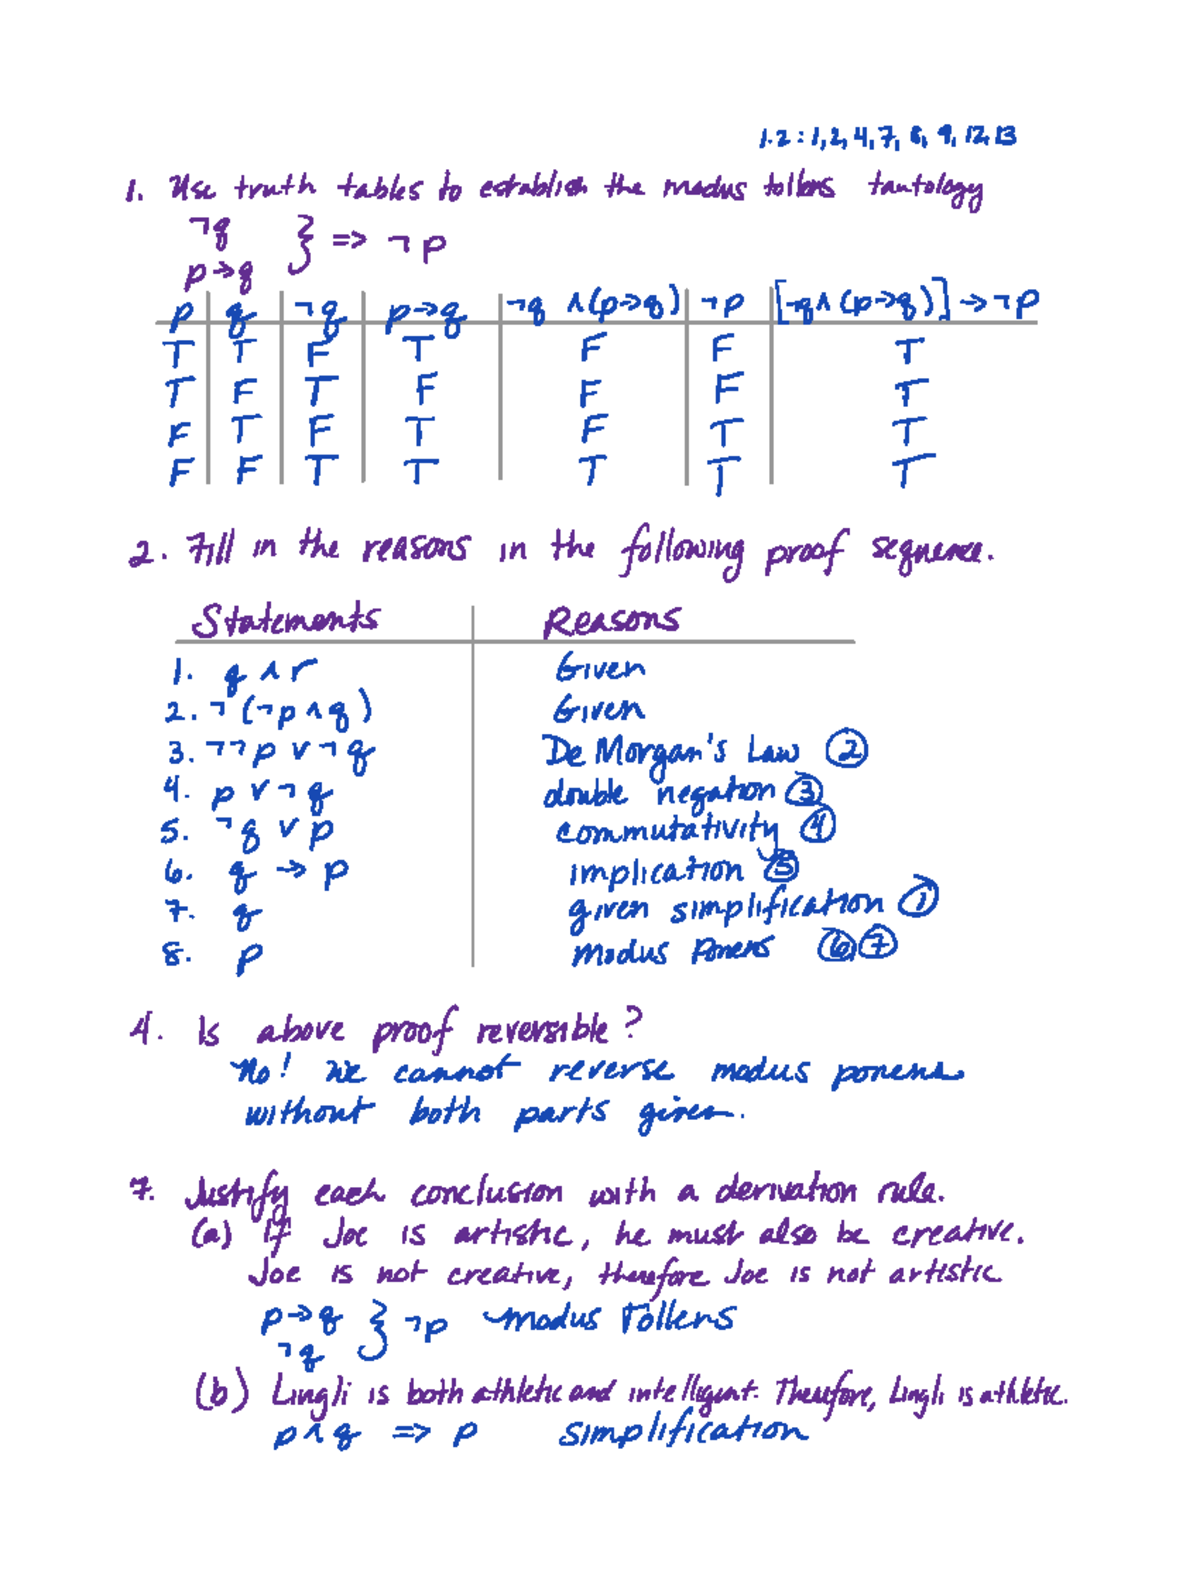 1.2 : 1, 2, 4, 7, 8, 9, 12, 13
1. Use truth tables to establish the modus tollens tautology
¬q
p→q } => ¬p
p | q | ¬q | p→q | ¬q ∧(p→q) | ¬p | [¬q∧(p→q)]→¬p
T T F T F F T
T F T F F F T
F T F T F T T
F F T T T T T
2. Fill in the reasons in the following proof sequence.
Statements Reasons
1. q ∧ r Given
2. ¬(¬p ∧ q) Given
3. ¬¬p ∨ ¬q De Morgan's Law ②
4. p ∨ ¬q double negation ③
5. ¬q ∨ p commutativity ④
6. q → p implication ⑤
7. q given simplification ①
8. p Modus Ponens ⑥⑦
4. Is above proof reversible?
No! We cannot reverse modus ponens
without both parts given.
7. Justify each conclusion with a derivation rule.
(a) If Joe is artistic, he must also be creative.
Joe is not creative, therefore Joe is not artistic
p→q
¬q } ¬p Modus Tollens
(b) Lingli is both athletic and intelligent. Therefore, Lingli is athletic.
p∧q => p simplification